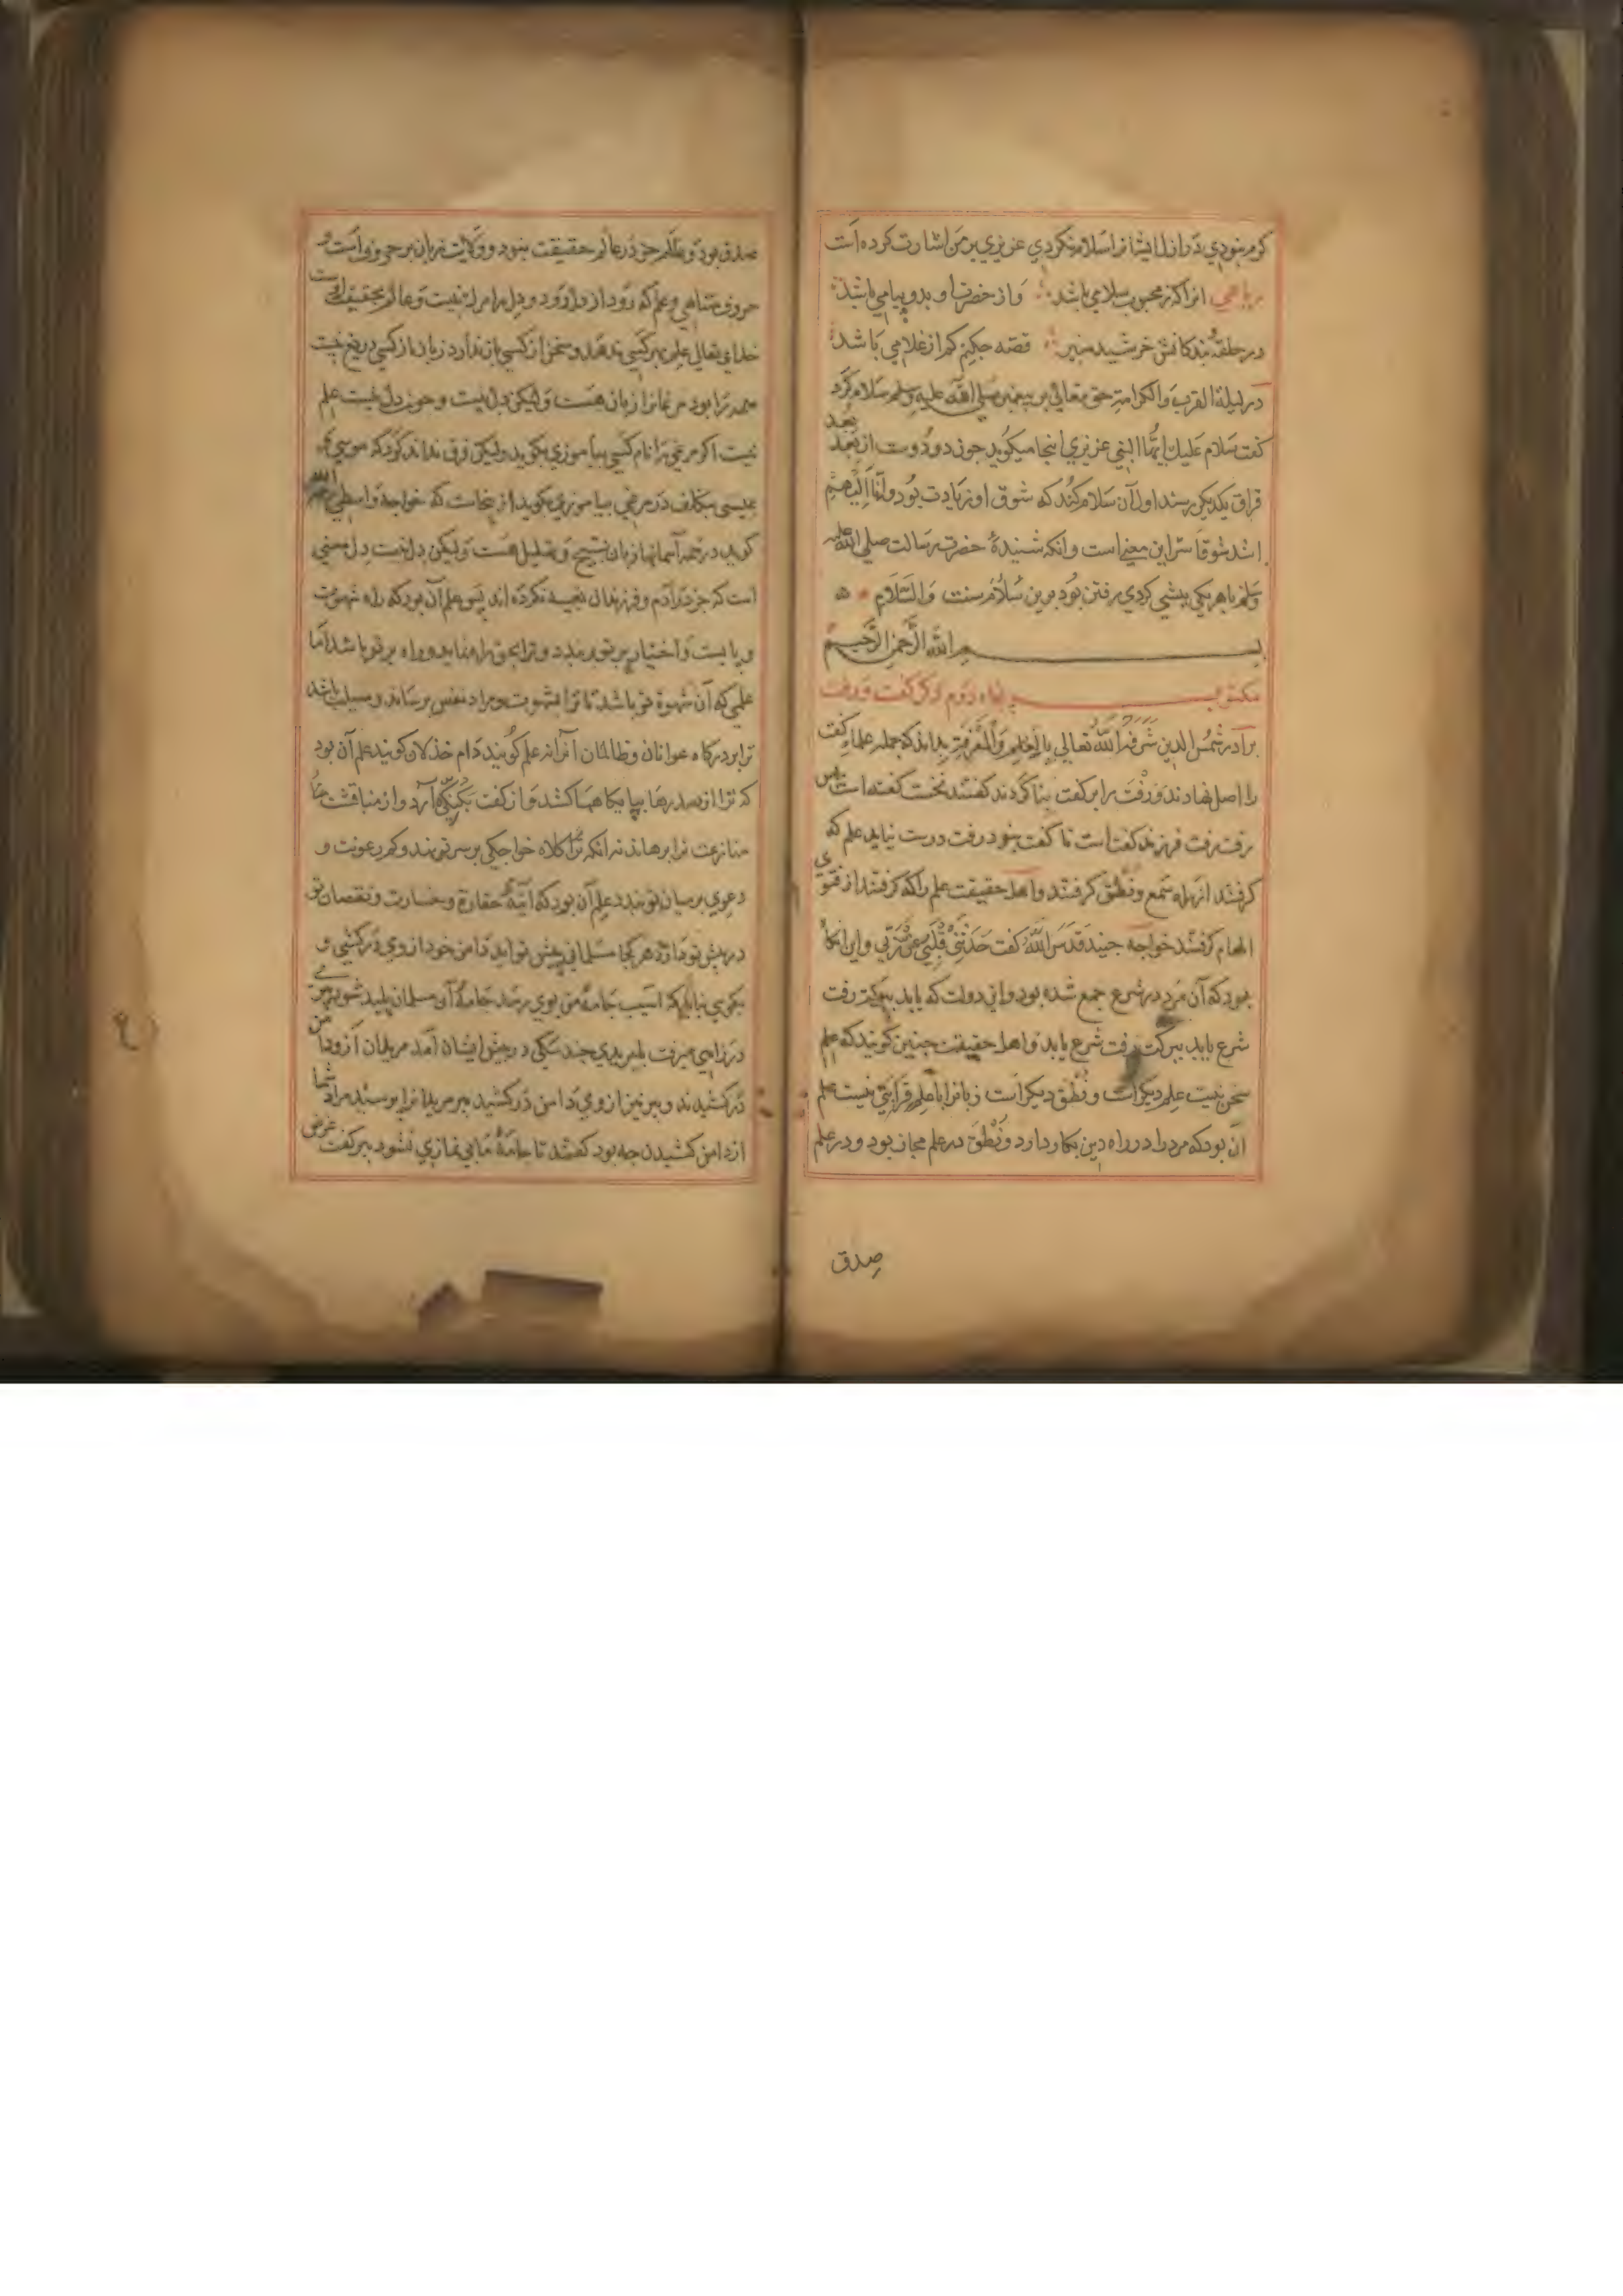 کرم نبودي دوازل ایشانرا سلام نکردي عزیزي برمن اشارت کرده است
رباعي آنرا که ز محبوب سلامي باشد وز حضرت او بدو پیامي باشد
در حلقۀ بندکانش خرشید منیر قصه چکنم کم از غلامي باشد
در لیلة القرب والکرامة حق تعالی بر پیغمبر صلی الله علیه وسلم سلام کرد
کفت سلام علیك ایها النبي عزیزي اینجا میکوید چون دو دوست از بعد
فراق یکدیکر رسند اول آن سلام کند که شوق او زیادت بود وانا الیهم
اشد شوقا سر این معنی است وانکه شنیدۀ حضرت رسالت صلی الله علیه
وسلم باهر یکي پیشي کردي رفتن بود برین سلام سنت والسلام
بسم الله الرحمن الرحیم
مکتوب پنجاه دوم در کفت و رفت
برادر شمس الدین شرفه الله تعالی بالعلم والمعرفة بداند که جمله علما کفت
را اصل نهادند و رفت را بر کفت بنا کردند کفتند نخست کفته است پس
رفت رفت فرزند کفت است تا کفت نبود رفت درست نیاید علم که
کرفتند از راه سمع ونطق کرفتند واهل حقیقت علم را که کرفتند از تقوی
الهام کرفتند خواجه جنید قدس الله کفت حدثني قلبي عن ربي و این انکاه
بود که آن مرد در شرع جمع شده بود و این دولت که یابد ببرکت رفت
شرع یابد ببرکت رفت شرع یابد واهل حقیقت چنین کویند که علم
سخن نیست علم دیکر است ونطق دیکر است زبانرا با علم قرابتي نیست علم
آن بود که مرد را در راه دین بکار دارد ونطق در علم مجاز بود و در علم
صدق
صدق بود و علم جز در عالم حقیقت نبود و ولایت زبان بر حروف است و
حروف متناهي وعلم که رود از دل رود و دل را نیست وعالم تحقیقت
خداي تعالی علم بهر کسي ندهد وسخن از کسي باز ندارد زبان از کسي دریغ نیست
همه را بود مرغانرا زبان هست ولیکن دل نیست وچون دل نیست علم
نیست اکر مرغي را نام کسي بیاموزي بکوید ولیکن فرق نداند کرد که موسي
عیسی بتکلف در مرغي بیاموزي بکوید از اینجاست که خواجه واسطي رحمه الله
کوید در همه آسمانها زبان تسبیح وتهلیل هست ولیکن دل نیست دل معني
است که جز در آدم و فرزندان تعبیه نکرده اند پس علم آن بود که راه شهوت
و بایست واختیار بر تو ببندد وترا بحق راه نماید و راه بر تو باشد اما
علمي که آن شهوة تو باشد تا ترا بشهوت و مراد نفس برساند و سبیلت باشد
ترا بر درکاه عوانان وظالمان آنرا نه علم کویند دام خذلان کویند علم آن بود
که ترا از صدرها بپایکاهها کشد و از کفت بکنکي آرد و از مناقشت
منازعت ترا برهاند نه انکه ترا کلاه خواجکي بر سر تو نهد و کمر رعونت و
دعوي بر میان تو بندد علم آن بود که آئینۀ حقارة وخسارت ونقصان تو
در پیش تو دارد هر کجا مسلماني پیش تو آید دامن خود از وي درکشي و
بکوي نباید که آسیب جامۀ من بوي رسد جامۀ آن مسلمان پلید شود
در راهي میرفت با مریدي چند سکي در پیش ایشان آمد مریدان از و دامن
درکشیدند و پیر نیز از وي دامن درکشید پیر مریدانرا پرسید مراد شما
از دامن کشیدن چه بود کفتند تا جامۀ ما بي نمازي نشود پیر کفت غرض